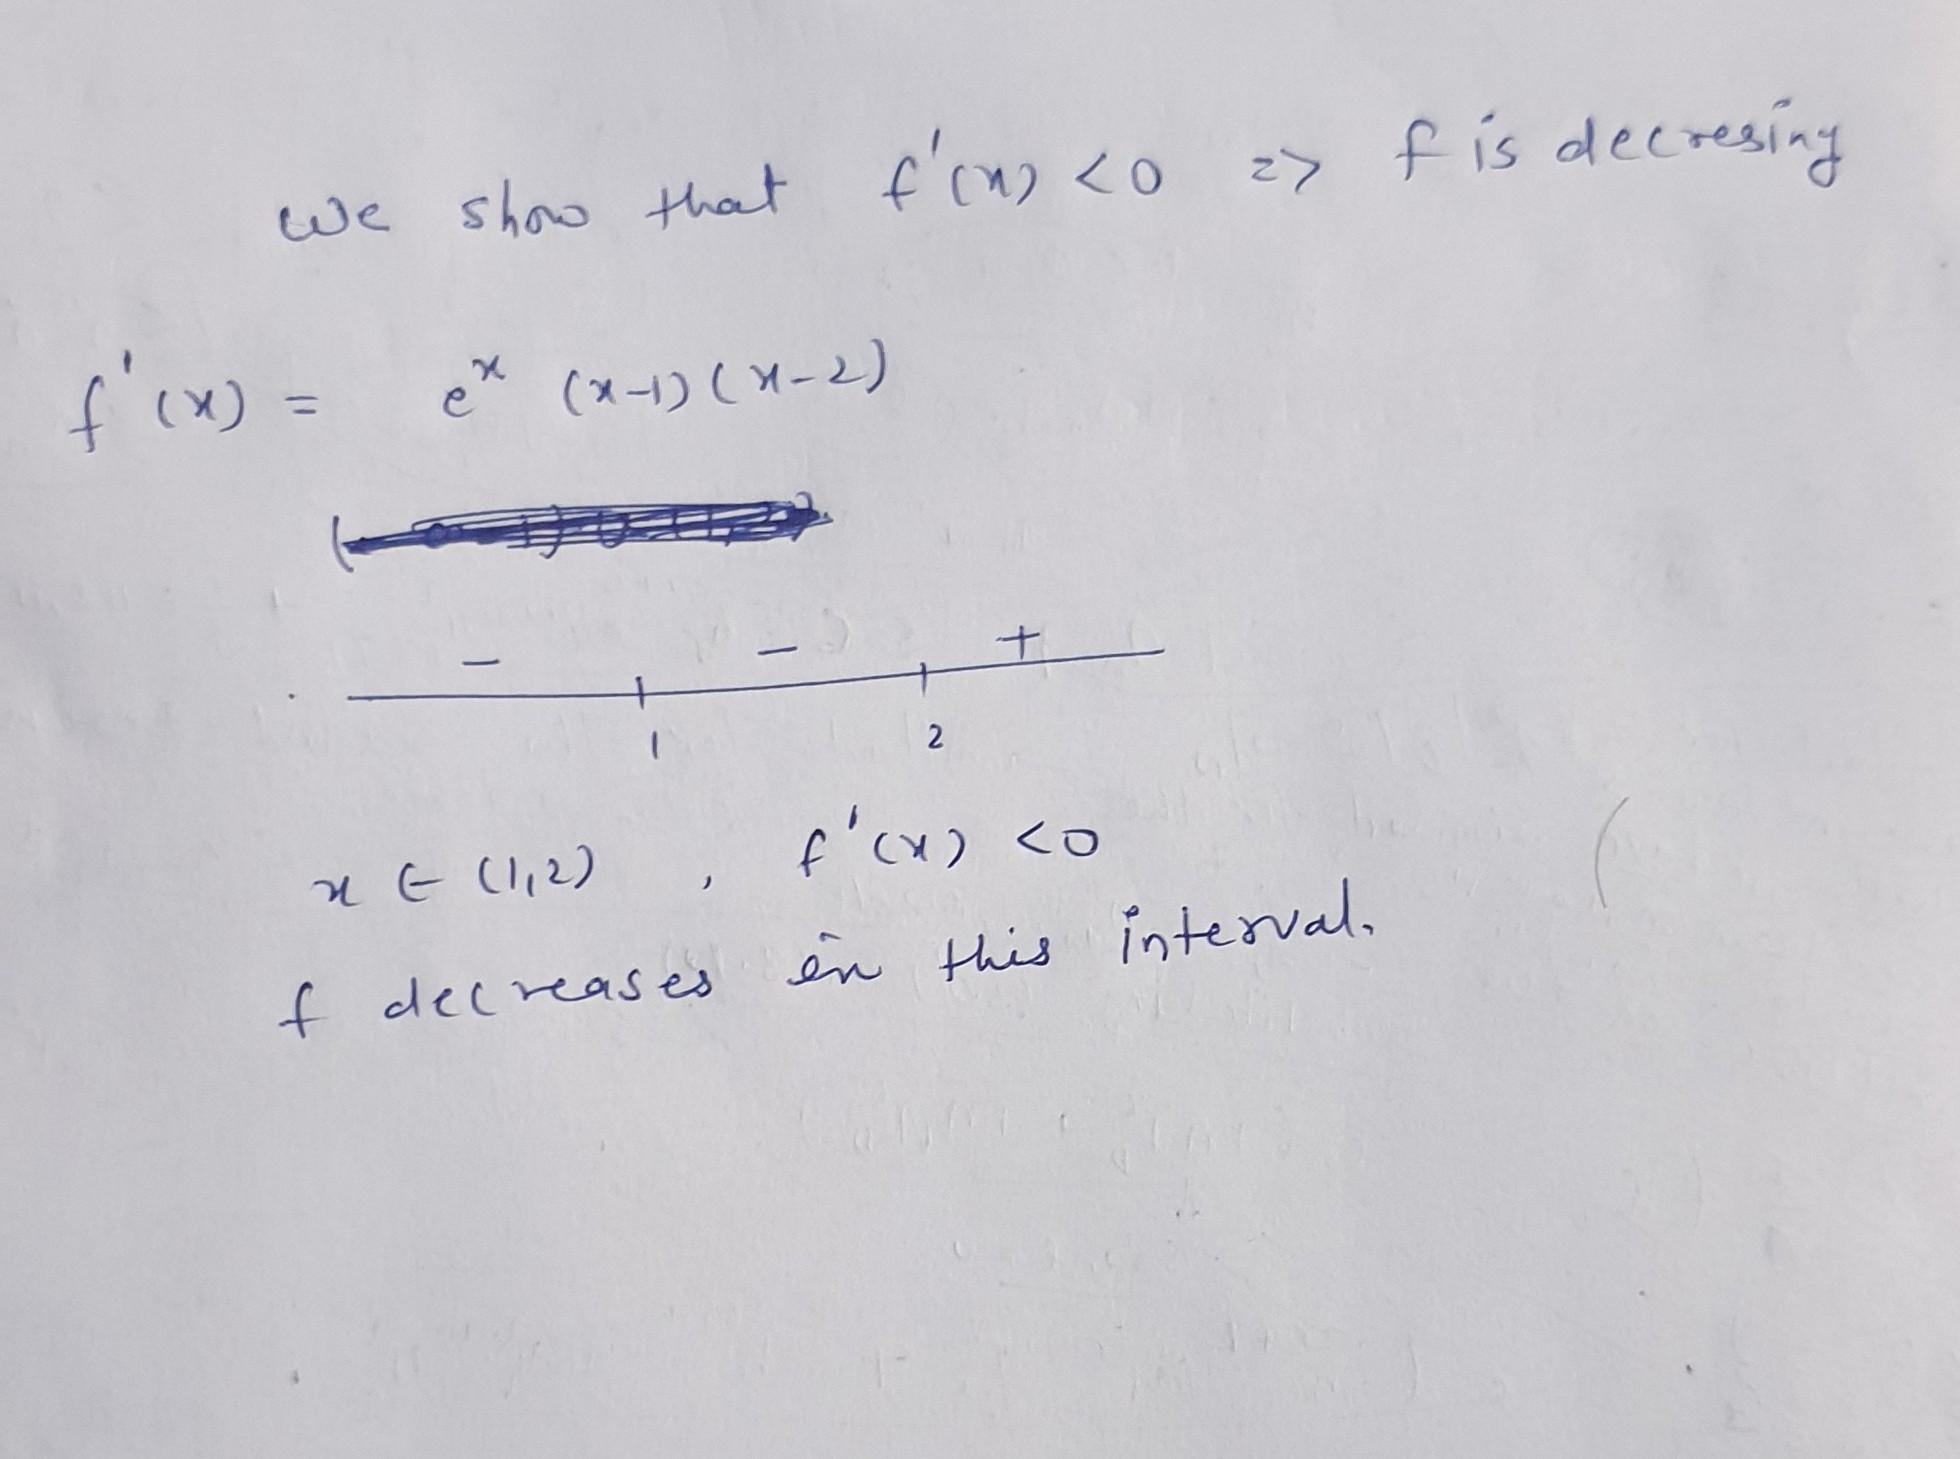 We show that f'(x) <0 => f is decresing
f'(x) = e^x (x-1)(x-2)
- - +
1 2
x ∈ (1,2) , f'(x) <0
f decreases in this interval.